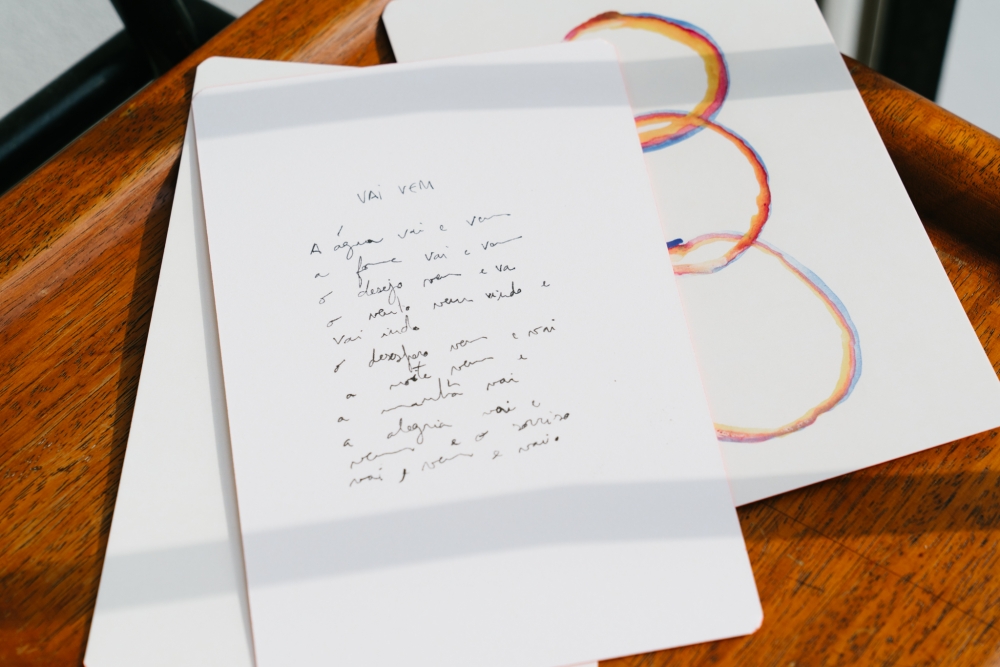 VAI VEM
A água vai e vem
a fome vai e vem
o desejo vem e vai
o vento vem vindo e
vai indo
o desespero vem e vai
a noite vem e
a manhã vai
a alegria vai e
vem e o sorriso
vai e vem e vai.